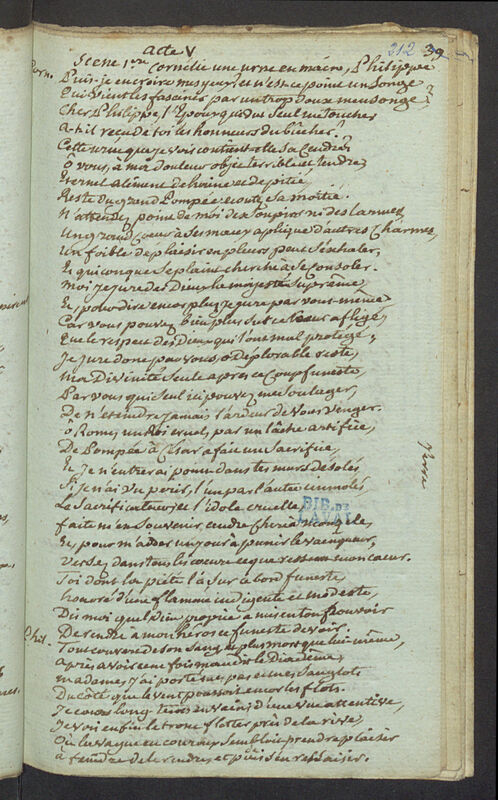 212 39
acte V
Scene 1re Cornelie une urne en main, Philippe
Corn. Puis-je en croire mes yeux et n'est-ce point un Songe
Qui vient les fasciner par un trop doux mensonge?
Cher Philippe, l'Epoux qui dut seul me toucher
A-t-il reçu de toi les honneurs du bûcher?
Cette urne que je vois contient-elle sa Cendre?
ô vous, à ma douleur objet terrible et tendre,
Eternel aliment de haine et de pitié,
Reste du grand Pompée ecoutés sa moitié.
N'attendés point de moi des Soupirs ni des larmes,
Un grand Coeur à ses maux aplique d'autres Charmes,
Un foible deplaisir en pleurs peut s'exhaler,
Et quiconque se plaint cherche à se Consoler.
Moi je jure des Dieux la majesté Suprême,
Et pour dire encor plus je jure par vous-meme
Car vous pouvez bien plus sur ce Coeur afligé,
Que le respect des dieux qui l'ont mal protegé;
Je jure donc par vous, ô deplorable reste,
Ma Divinité Seule après ce Coup funeste,
Par vous qui Seul ici pouvez me Soulager,
De n'eteindre jamais l'ardeur de vous venger.
ô Rome, un Roi cruel, par un lâche artifice,
De Pompée à Cesar a fait un Sacrifice,
Et je n'entrerai point dans tes murs desolés
Si je n'ai vu perir, l'un par l'autre immolés
Le Sacrificateur et l'idole cruelle.
faite m'en Souvenir, cendre
Et pour m'aider un jour à punir le vainqueur,
Versés dans tous les coeurs ce que ressent mon coeur.
Toi dont la pieté l'a Sur ce bord funeste
honoré d'une flamme indigente et modeste,
Dis moi quel Dieu propice a mis en ton pouvoir
De rendre à mon héros ce funeste devoir.
Phil. Tout couvert de son Sang et plus mort que lui-même,
Après avoir cent fois maudit le Diadême,
madame, j'ai porté mes pas et mes Sanglots
Du côté que le vent poussoit encor les flots.
Je cours long tems en vain; d'une vue attentive,
Je vois enfin le tronc flotter près de la rive,
Où la vague en couroux sembloit prendre plaisir
à feindre de le rendre, et puis s'en ressaisir.
BIB. DE
LAVAL